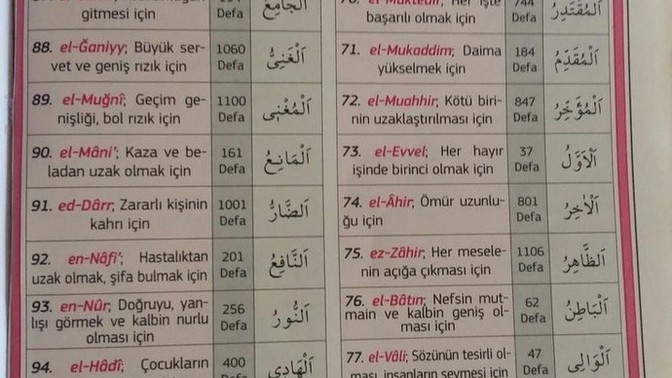 gitmesi için
Defa
اَلْجَامِعُ
88. el-Ğaniyy; Büyük ser-
vet ve geniş rızık için
1060
Defa
اَلْغَنِىُّ
89. el-Muğnî; Geçim ge-
nişliği, bol rızık için
1100
Defa
اَلْمُغْنِى
90. el-Mâni'; Kaza ve be-
ladan uzak olmak için
161
Defa
اَلْمَانِعُ
91. ed-Dârr; Zararlı kişinin
kahrı için
1001
Defa
اَلضَّارُّ
92. en-Nâfi'; Hastalıktan
uzak olmak, şifa bulmak için
201
Defa
اَلنَّافِعُ
93. en-Nûr; Doğruyu, yan-
lışı görmek ve kalbin nurlu
olması için
256
Defa
اَلنُّورُ
94. el-Hâdî; Çocukların
400
Defa
اَلْهَادِى
70. el-Muktedir; Her işte
başarılı olmak için
744
Defa
اَلْمُقْتَدِرُ
71. el-Mukaddim; Daima
yükselmek için
184
Defa
اَلْمُقَدِّمُ
72. el-Muahhir; Kötü biri-
nin uzaklaştırılması için
847
Defa
اَلْمُؤَخِّرُ
73. el-Evvel; Her hayır
işinde birinci olmak için
37
Defa
اَلْاَوَّلُ
74. el-Âhir; Ömür uzunlu-
ğu için
801
Defa
اَلْاٰخِرُ
75. ez-Zâhir; Her mesele-
nin açığa çıkması için
1106
Defa
اَلظَّاهِرُ
76. el-Bâtın; Nefsin mut-
main ve kalbin geniş ol-
ması için
62
Defa
اَلْبَاطِنُ
77. el-Vâli; Sözünün tesirli ol-
ması, insanların sevmesi için
47
Defa
اَلْوَالِى